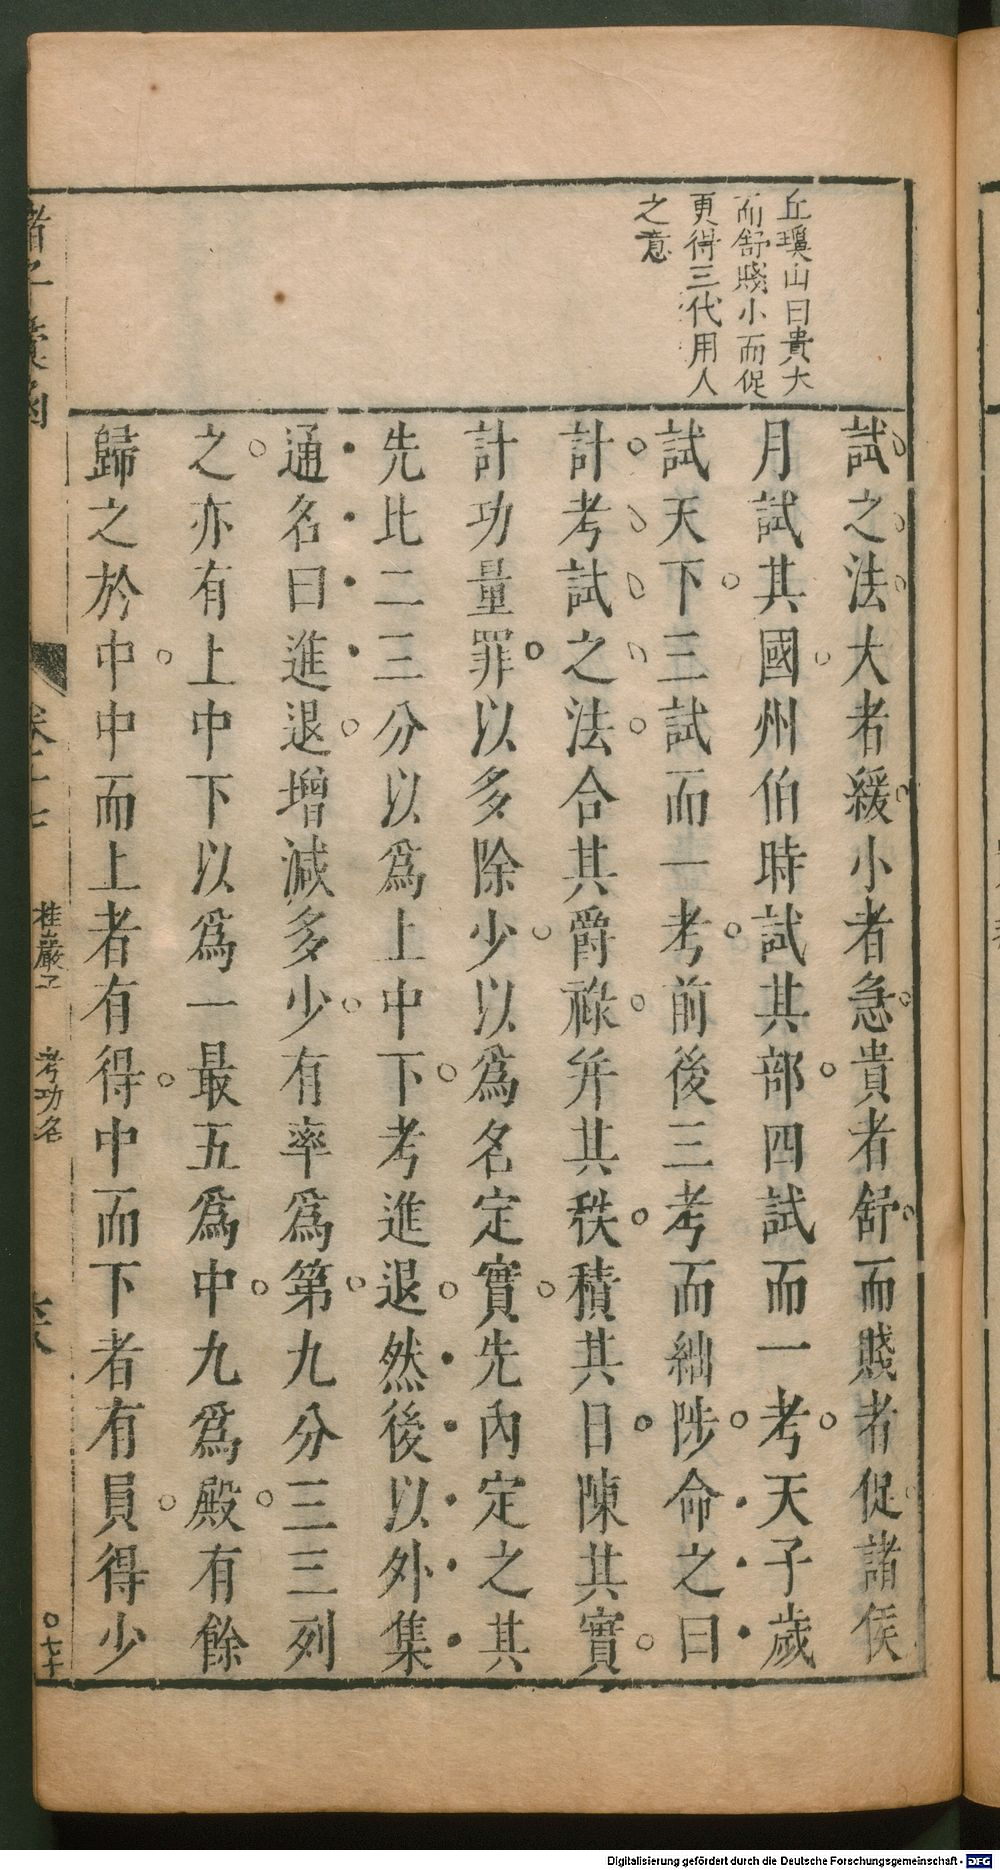 丘瓊山曰貴大
而舒賤小而促
更得三代用人
之意
試之法大者緩小者急貴者舒而賤者促諸侯
月試其國州伯時試其部四試而一考天子歲
試天下三試而一考前後三考而絀陟命之曰
計考試之法合其爵祿并其秩積其日陳其實
計功量罪以多除少以爲名定實先內定之其
先比二三分以爲上中下考進退然後以外集
通名曰進退增減多少有率爲第九分三三列
之亦有上中下以爲一最五爲中九爲殿有餘
歸之於中中而上者有得中而下者有員得少
諸子彙函
卷二十七
桂巖子
考功名
六
〇七十
Digitalisierung gefördert durch die Deutsche Forschungsgemeinschaft - DFG